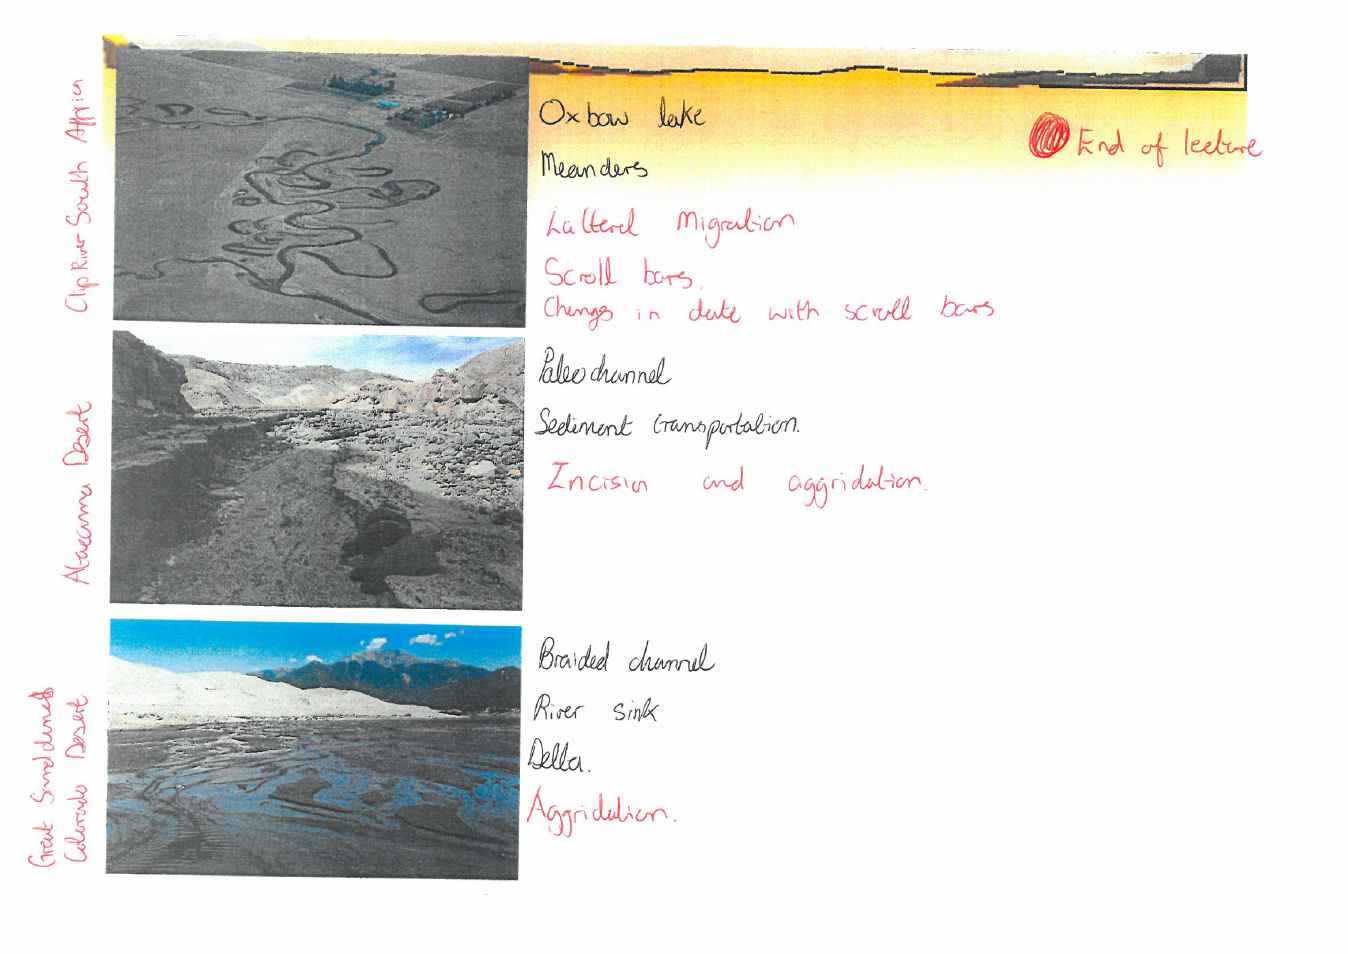 Clip River South Affrica
Oxbow lake
Meanders
Latterel Migration
Scroll bars.
Changs in date with scroll bars
End of lecture
Ataccama Desert
Paleochannel
Sediment transportation.
Incision and aggridation.
Great Sand dunes
Colorado Desert
Braided channel
River sink
Delta.
Aggridation.